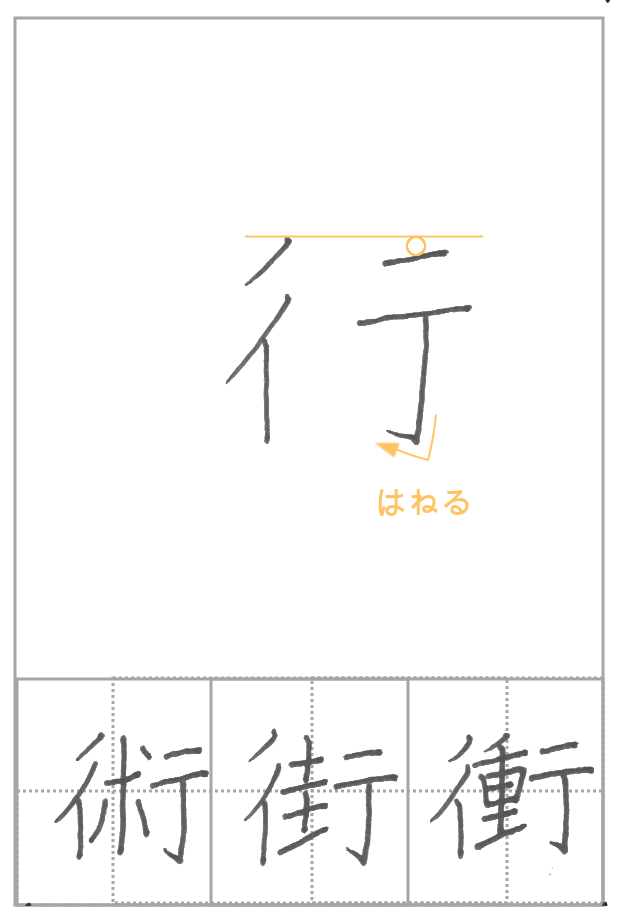 行
はねる
術 街 衝